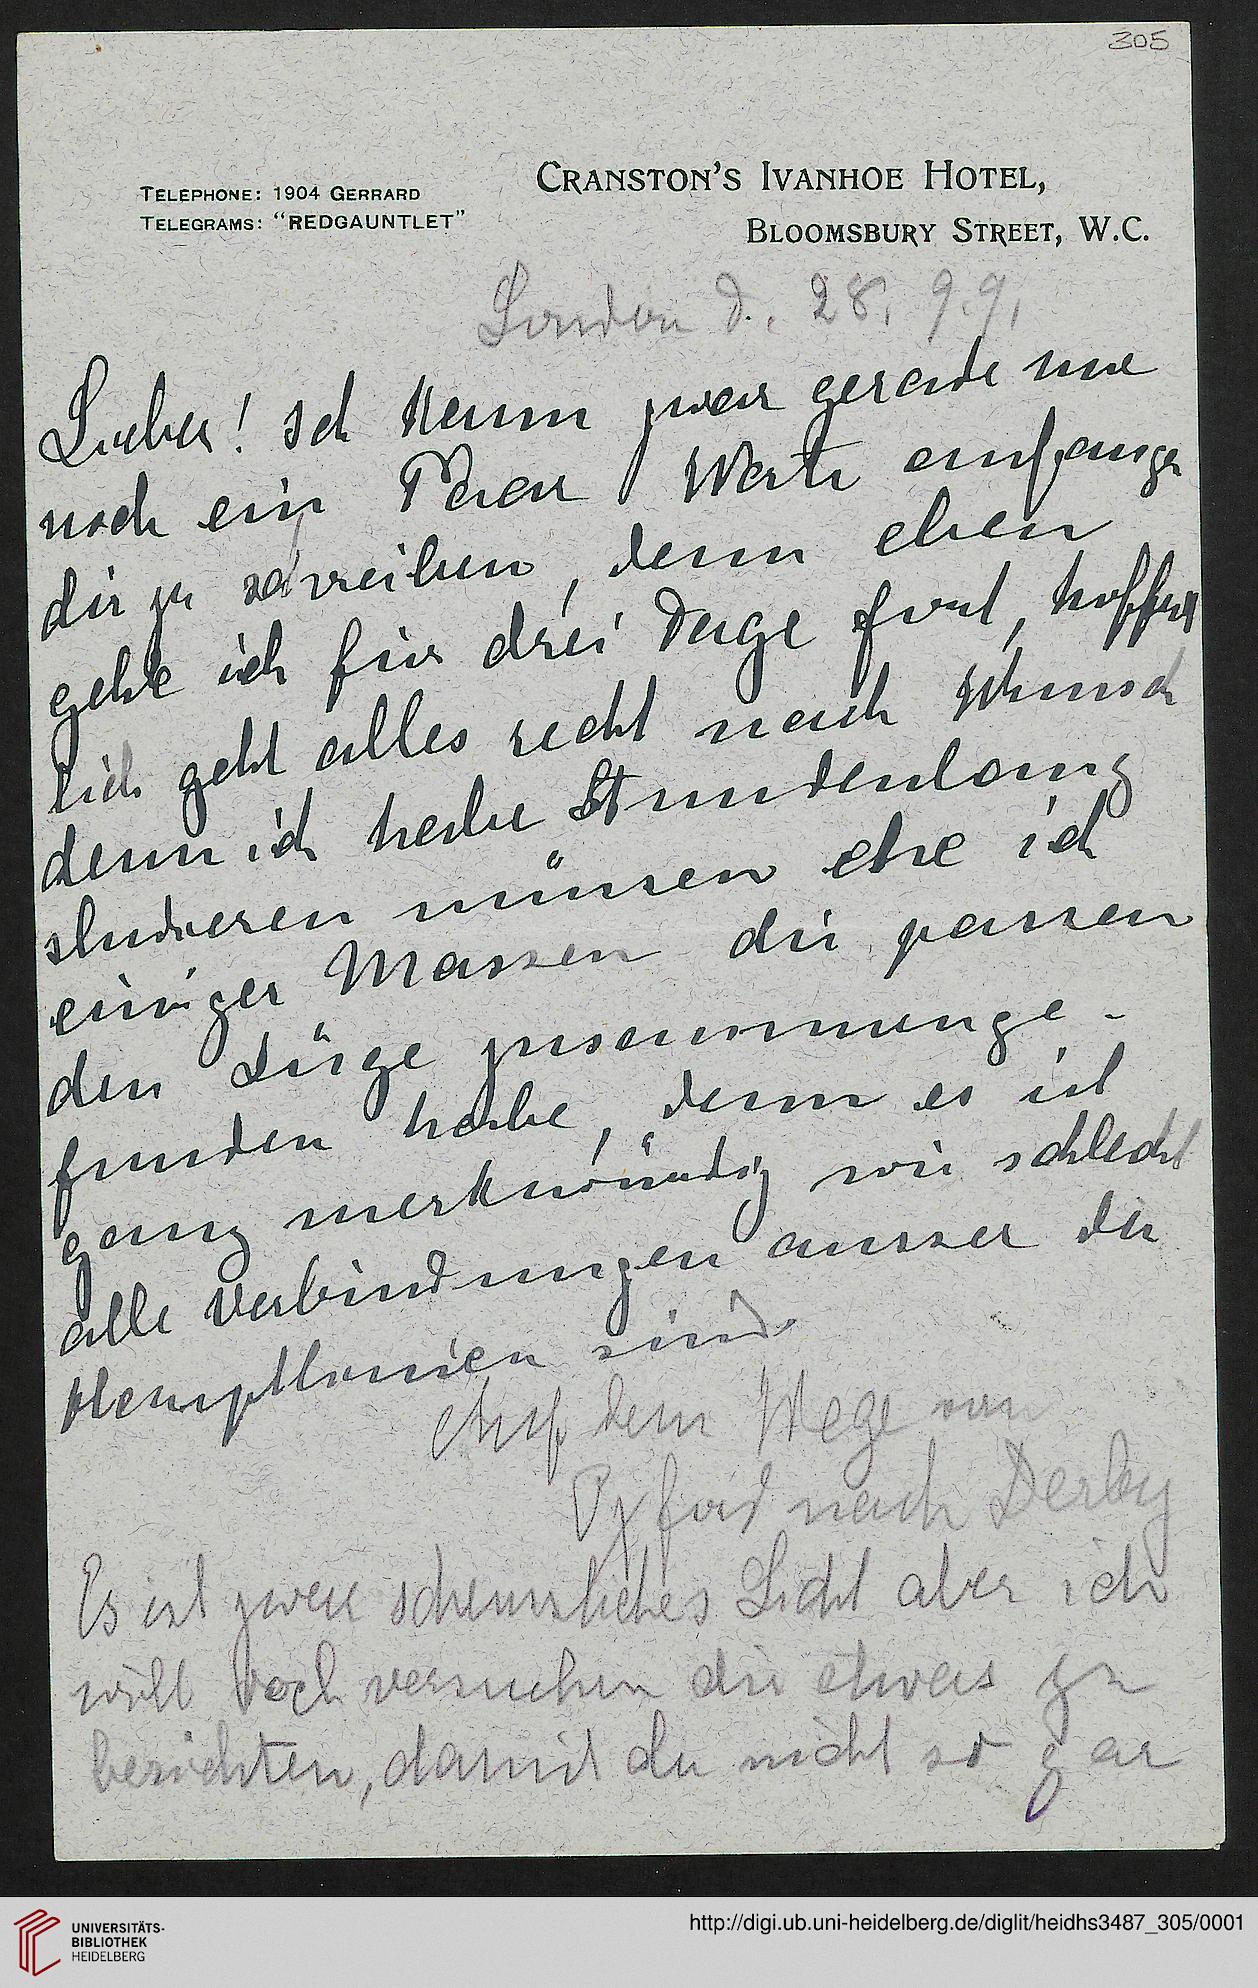 305
Telephone: 1904 Gerrard
Telegrams: "Redgauntlet"
Cranston's Ivanhoe Hotel,
Bloomsbury Street, W.C.
London d. 28. 9. 9.
Lieber! Ich kann zwar gerade nur
noch ein Paar Worte anfangen
dir zu schreiben, denn eben
gehe ich für drei Tage fort, hoffent
lich geht alles recht nach Wunsch
denn ich habe Stundenlang
studieren müssen ehe ich
einiger Massen die passen
den Züge zusammenge-
funden habe, denn es ist
ganz merkwürdig wie schlecht
alle Verbindungen ausser den
Hauptlinien sind.
Auf dem Wege von
Oxford nach Derby
Es ist zwar scheussliches Licht aber ich
will doch versuchen dir etwas zu
berichten, damit du nicht so gar
UNIVERSITÄTS-
BIBLIOTHEK
HEIDELBERG
http://digi.ub.uni-heidelberg.de/diglit/heidhs3487_305/0001